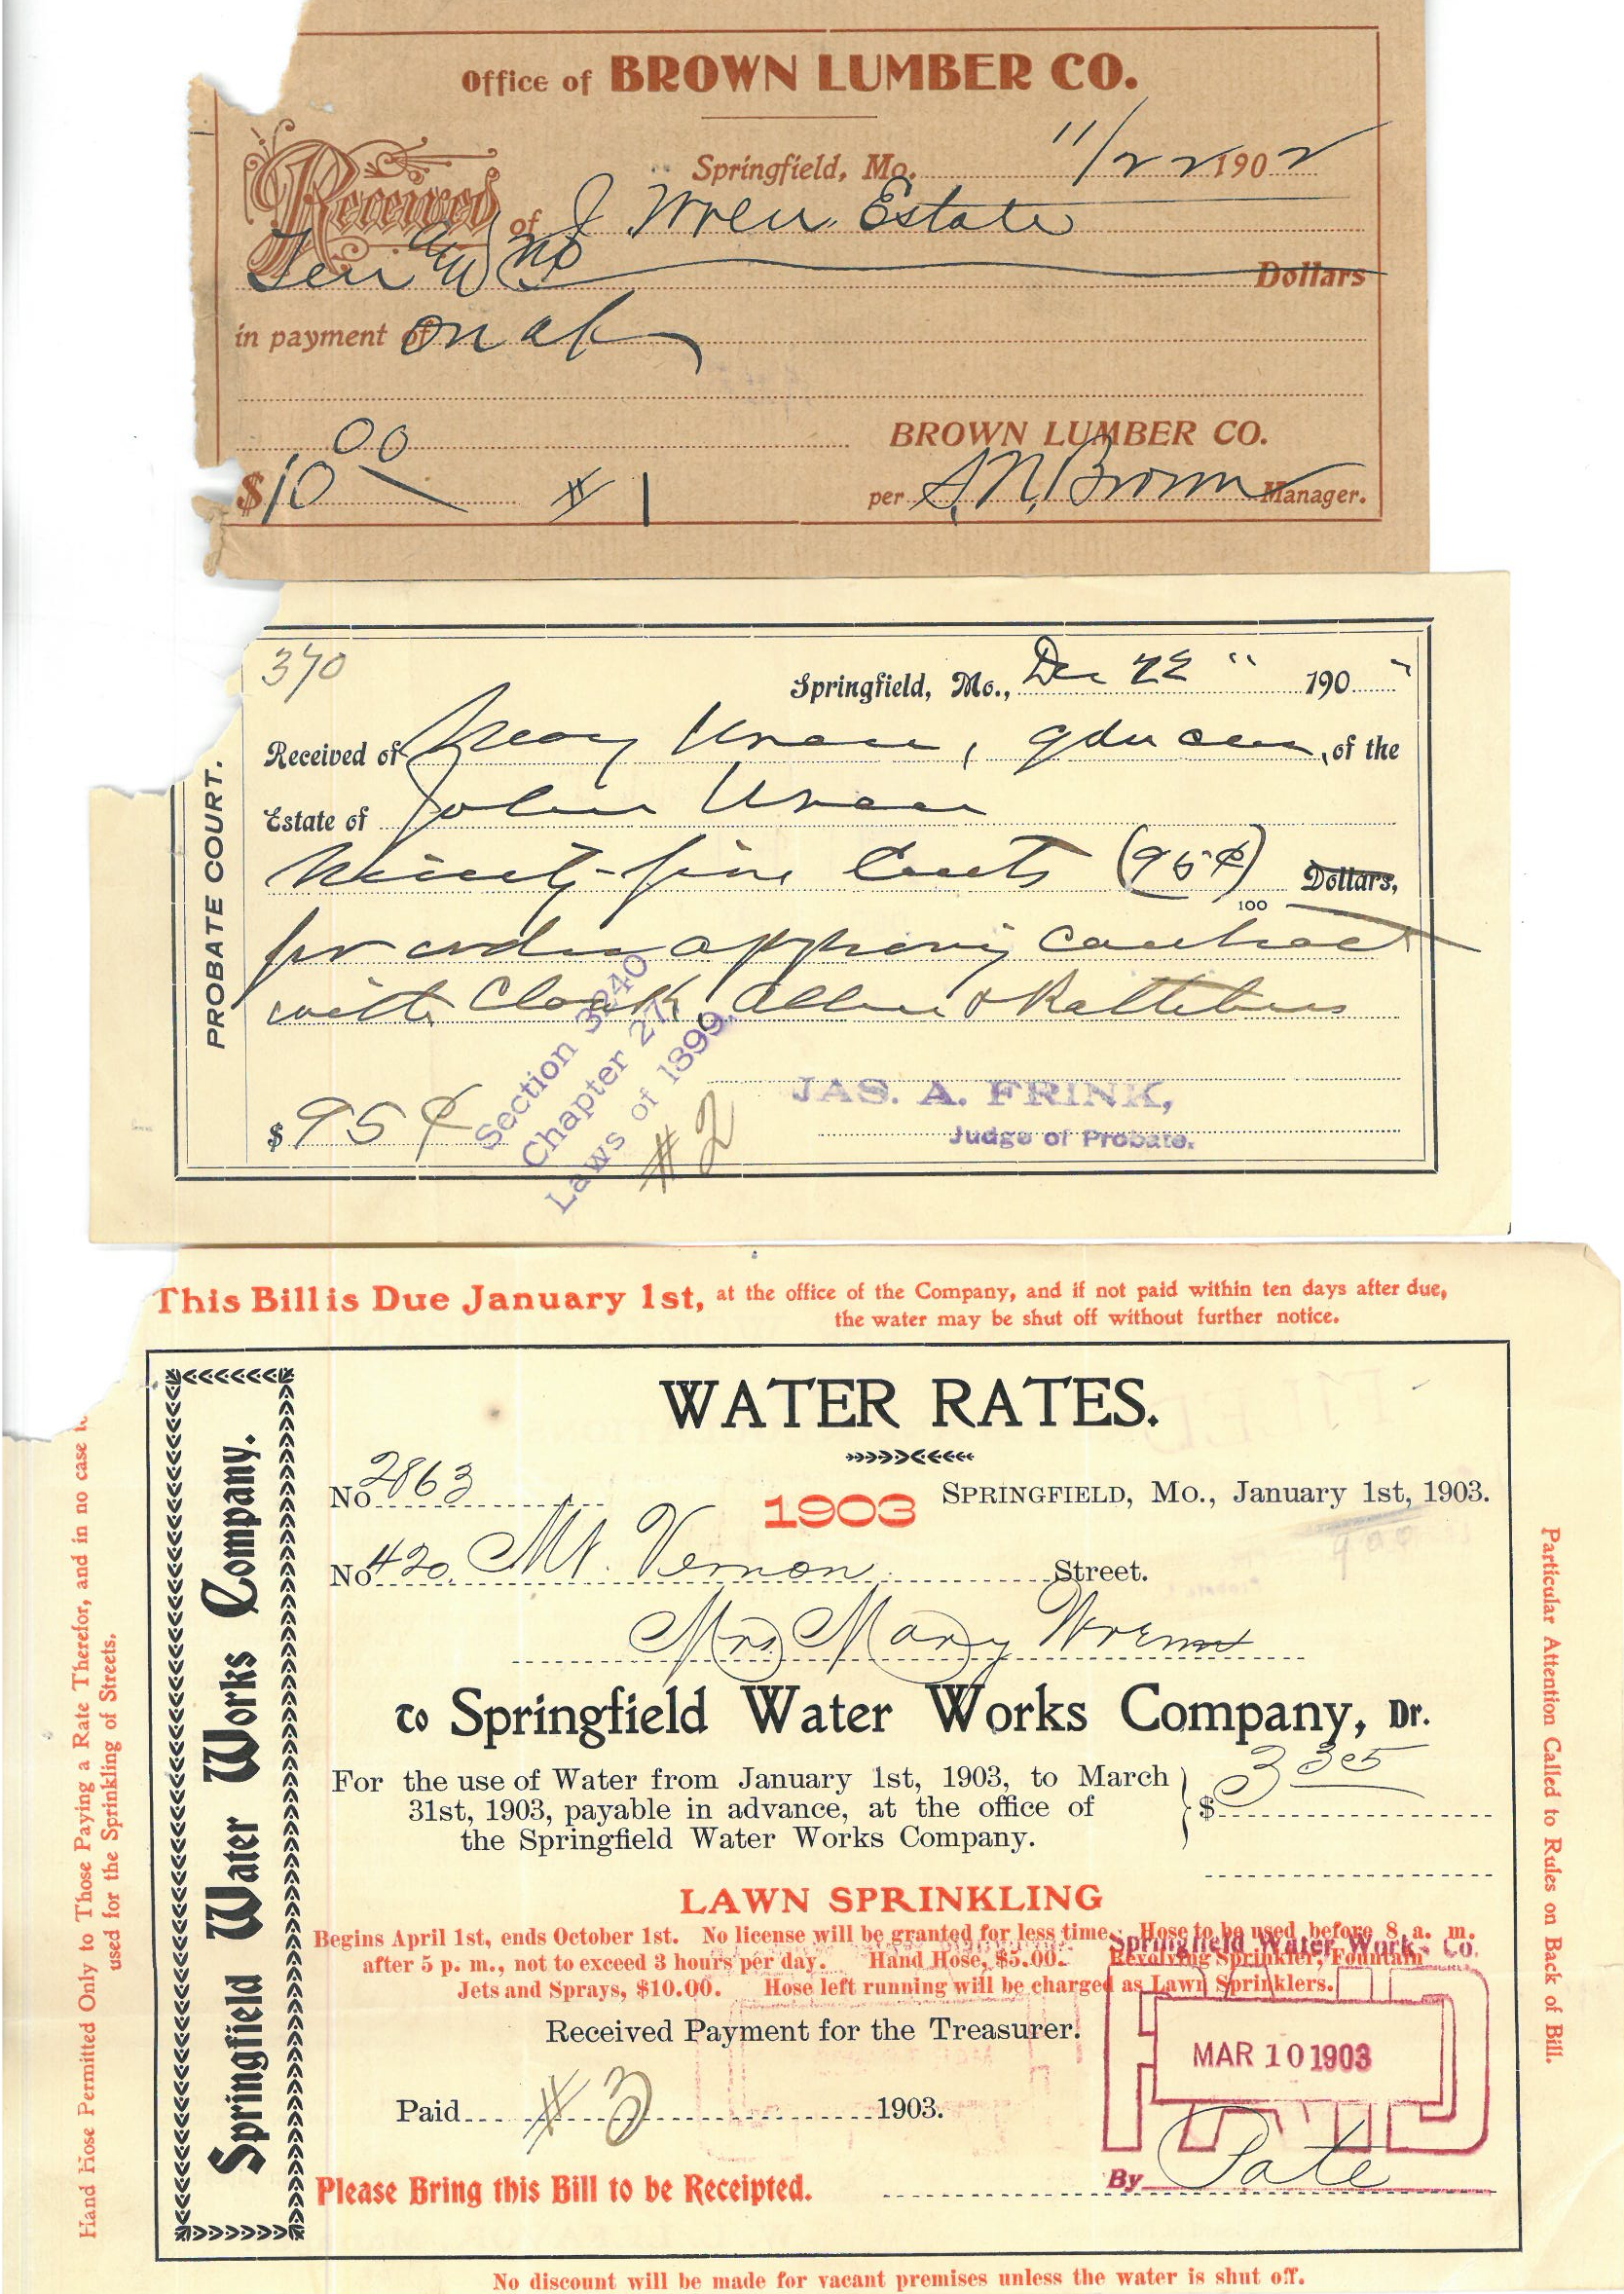 Office of BROWN LUMBER CO.
Springfield, Mo. 11/22 1902
Received of J Wren Estate
Ten and no Dollars
in payment of on a/c
BROWN LUMBER CO.
$10 00 # 1
per S. N. Brown Manager.
370
PROBATE COURT.
Springfield, Mo., Dec 22 " 190 "
Received of Mary Wren, gdn , of the
Estate of John Wren
Ninety-five Cents (95¢) Dollars,
100
for order approving contract
with Clark, Allen &
Section 3240
Chapter 27,
Laws of 1899.
JAS. A. FRINK,
Judge of Probate.
$ 95¢
# 2
This Bill is Due January 1st, at the office of the Company, and if not paid within ten days after due,
the water may be shut off without further notice.
Springfield Water Works Company.
Hand Hose Permitted Only to Those Paying a Rate Therefor, and in no case
used for the Sprinkling of Streets.
WATER RATES.
No 2863
1903 SPRINGFIELD, Mo., January 1st, 1903.
No 420. Mt. Vernon Street.
Mrs. Mary Wrenn
To Springfield Water Works Company, Dr.
For the use of Water from January 1st, 1903, to March
31st, 1903, payable in advance, at the office of
the Springfield Water Works Company.
$ 3
LAWN SPRINKLING
Begins April 1st, ends October 1st. No license will be granted for less time. Hose to be used before 8 a. m.
after 5 p. m., not to exceed 3 hours per day. Hand Hose, $5.00. Revolving Sprinkler, Fountain
Jets and Sprays, $10.00. Hose left running will be charged as Lawn Sprinklers.
Springfield Water Works Co.
PAID
MAR 10 1903
Received Payment for the Treasurer.
Paid # 3 1903.
By Pate
Please Bring this Bill to be Receipted.
Particular Attention Called to Rules on Back of Bill.
No discount will be made for vacant premises unless the water is shut off.